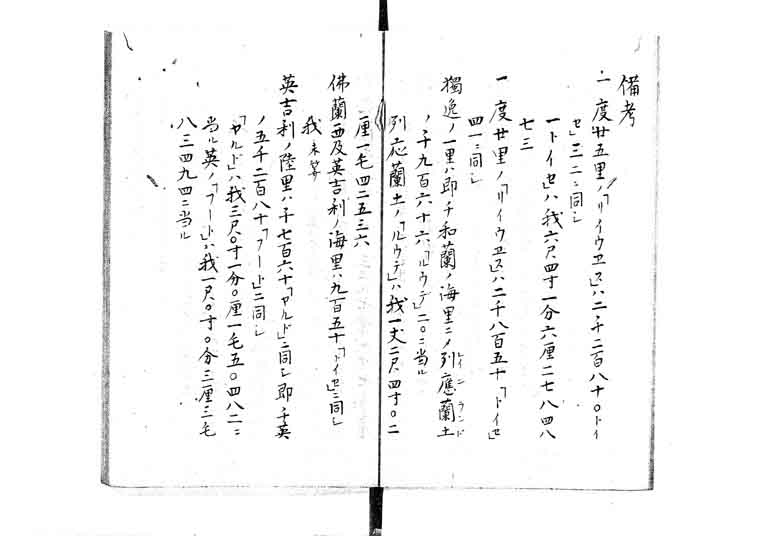 備考
一 度廿五里ノ「リイウヱス」ハ二千二百八十〇トイ
セ」三二ニ同シ
一トイセ」ハ我六尺四寸一分六厘二七八四八
七三
一 度廿里ノ「リイウヱス」ハ二千八百五十「トイセ」
四一ニ同シ
獨逸ノ一里ハ即チ和蘭ノ海里ニノ列應蘭土
ノ千九百六十六「ルウデ」二〇ニ当ル
列应蘭土ノ「ルウデ」ハ我一丈二尺四寸〇二
二厘一毛四二五三六
佛蘭西及英吉利ノ海里ハ九百五十「トイセ」ニ同シ
我 未詳
英吉利ノ陸里ハ千七百六十「ヤルド」ニ同シ即チ英
ノ五千二百八十「フート」ニ同シ
「ヤルド」ハ我三尺〇寸一分〇厘一毛五〇四八二ニ
当ル英ノ「フート」ハ我一尺〇寸〇分三厘三毛
八三四九四ニ当ル